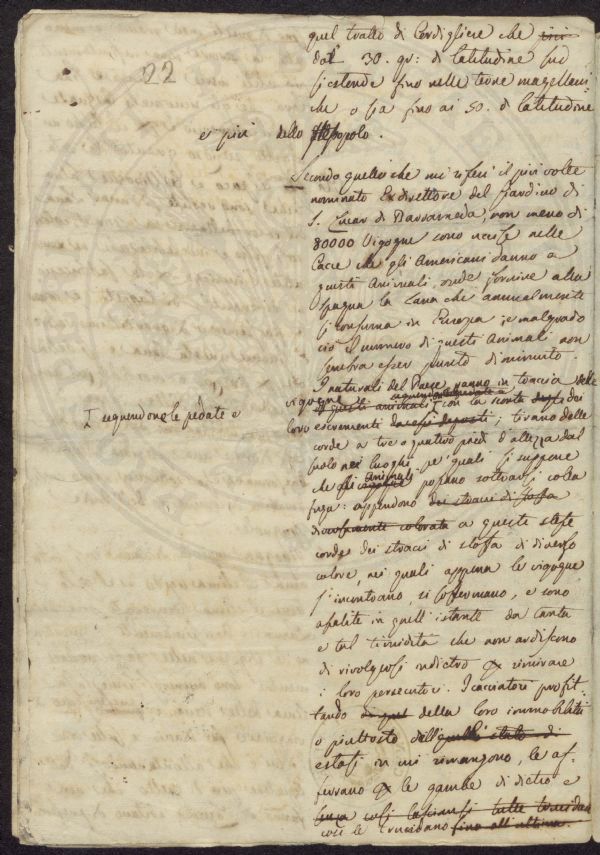 22
quel tratto di Cordigliere che
dal 30. gr: di latitudine sud
si estende fino nelle terre magellani-
che o sia fino ai 50. di latitudine
e più dello stesso polo.
Secondo quello che mi riferì il più volte
nominato Exdirettore del Giardino di
S. Lucar di Barrameda, non meno di
80000 Vigogne sono uccise nelle
Cacce che gli Americani danno a
questi Animali, onde fornire alla
Spagna la Lana che annualmente
si consuma in Europa; e malgrado
ciò il numero di questi Animali non
sembra esser punto diminuito.
I naturali del Paese vanno in traccia delle
vigogne e
I seguendone le pedate e
di questi animali, con la scorta dei
loro escrementi; tirano delle
corde a tre o quattro piedi d'altezza dal
suolo nei luoghi pe' quali si suppone
che gli animali possano sottrarsi colla
fuga: appendono dei stracci di stoffa
diversamente colorata a queste stesse
corde dei stracci di stoffa di diverso
colore, nei quali appena le vigogne
s'incontrano, si soffermano, e sono
assalite in quell'istante da tanta
e tal timidità che non ardiscono
di rivolgersi indietro a rimirare
i loro persecutori. I cacciatori profit-
tando della loro immobilità
o piuttosto dell'
estasi in cui rimangono, le af-
ferrano per le gambe di dietro e
senza così lasciarsi tutte trucidare
così le trucidano fino all'ultima.